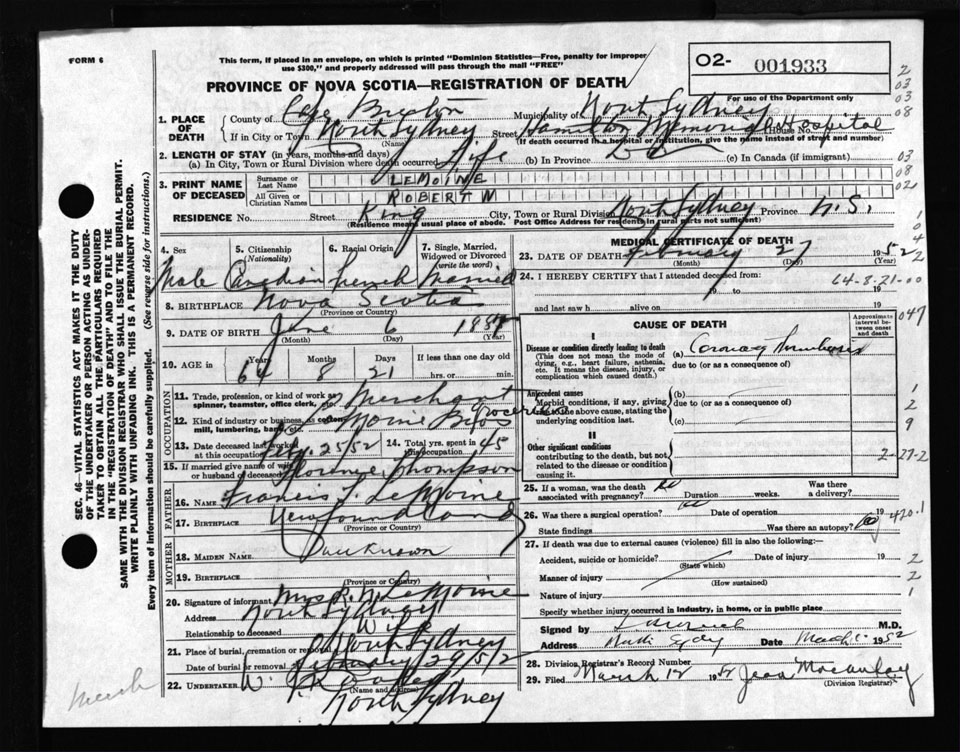 FORM 6
This form, if placed in an envelope, on which is printed "Dominion Statistics—Free, penalty for improper
use $300," and properly addressed will pass through the mail "FREE"
02- 001933
For use of the Department only
PROVINCE OF NOVA SCOTIA—REGISTRATION OF DEATH
2
03
03
08
03
08
02
1. PLACE OF DEATH
County of Cape Breton Municipality of North Sydney
If in City or Town North Sydney Street Hamilton Memorial Hospital House No.
(Name) (If death occurred in a hospital or institution, give the name instead of street and number)
2. LENGTH OF STAY (in years, months and days)
(a) In City, Town or Rural Division where death occurred Life (b) In Province (c) In Canada (if immigrant)
3. PRINT NAME OF DECEASED
Surname or Last Name LEMOINE
All Given or Christian Names ROBERT M
RESIDENCE No. Street King City, Town or Rural Division North Sydney Province N.S.
(Residence means usual place of abode. Post Office Address for residents in rural parts not sufficient)
4. Sex Male
5. Citizenship (Nationality) Canadian
6. Racial Origin French
7. Single, Married, Widowed or Divorced (write the word) Married
8. BIRTHPLACE Nova Scotia
(Province or Country)
9. DATE OF BIRTH June 6 1887
(Month) (Day) (Year)
10. AGE in Years 64 Months 8 Days 21 If less than one day old
hrs. or min.
OCCUPATION
11. Trade, profession, or kind of work as spinner, teamster, office clerk, etc. Merchant
12. Kind of industry or business, as cotton mill, lumbering, bank, etc. LeMoine Bros Groceries
13. Date deceased last worked at this occupation Feb. 25/52
14. Total yrs. spent in this occupation 45
15. If married give name of wife or husband of deceased Florence Thompson
FATHER
16. NAME Francis J. LeMoine
17. BIRTHPLACE Newfoundland
(Province or Country)
MOTHER
18. MAIDEN NAME Unknown
19. BIRTHPLACE
(Province or Country)
20. Signature of informant Mrs. R. M. LeMoine
Address North Sydney
Relationship to deceased Wife
21. Place of burial, cremation or removal North Sydney
Date of burial or removal February 29/52
22. UNDERTAKER W.
(Name and address)
North Sydney
MEDICAL CERTIFICATE OF DEATH
23. DATE OF DEATH February 27 1952
(Month) (Day) (Year)
24. I HEREBY CERTIFY that I attended deceased from
64-8-21-00
19 to 19
and last saw h alive on 19
CAUSE OF DEATH
Approximate interval between onset and death
I
Disease or condition directly leading to death
(This does not mean the mode of dying, e.g., heart failure, asthenia, etc. It means the disease, injury, or complication which caused death.)
(a) Coronary Thrombosis
due to (or as a consequence of)
Antecedent causes
Morbid conditions, if any, giving rise to the above cause, stating the underlying condition last.
(b)
due to (or as a consequence of)
(c)
II
Other significant conditions
contributing to the death, but not related to the disease or condition causing it.
047
1
2
9
2-27-2
25. If a woman, was the death associated with pregnancy? No Duration weeks. Was there a delivery?
26. Was there surgical operation? No Date of operation 19
State findings Was there an autopsy? No
420.1
27. If death was due to external causes (violence) fill in also the following:—
Accident, suicide or homicide? Date of injury 19
(State which)
Manner of injury
(How sustained)
Nature of injury
Specify whether injury occurred in industry, in home, or in public place
2
2
1
Signed by M.D.
Address North Sydney Date March 1 1952
28. Division Registrar's Record Number
29. Filed March 12 1952 Jean Macaulay
(Division Registrar)
SEC. 46—VITAL STATISTICS ACT MAKES IT THE DUTY
OF THE UNDERTAKER OR PERSON ACTING AS UNDERTAKER
TO OBTAIN ALL THE PARTICULARS REQUIRED
IN THE "REGISTRATION OF DEATH" AND TO FILE THE
SAME WITH THE DIVISION REGISTRAR WHO SHALL ISSUE THE BURIAL PERMIT.
WRITE PLAINLY WITH UNFADING INK. THIS IS A PERMANENT RECORD.
Every item of information should be carefully supplied. (See reverse side for instructions.)
merch